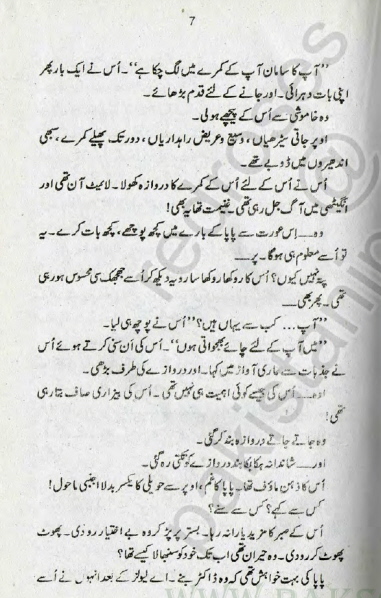 7
”آپ کا سامان آپ کے کمرے میں لگ چکا ہے“۔ اُس نے ایک بار پھر
اپنی بات دہرائی۔ اور جانے کے لئے قدم بڑھائے۔
وہ خاموشی سے اُس کے پیچھے ہولی۔
اوپر جاتی سیڑھیاں، وسیع و عریض راہداریاں، دور تک پھیلے کمرے، سبھی
اندھیروں میں ڈوبے تھے۔
اُس نے اُس کے لئے اُس کے کمرے کا دروازہ کھولا۔ لائیٹ آن تھی اور
انگیٹھی میں آگ جل رہی تھی۔ غنیمت تھا یہ بھی!
وہ.... اِس عورت سے پاپا کے بارے میں کچھ پوچھے، کچھ بات کرے۔ یہ
تو اُسے معلوم ہی ہوگا۔ پر....
پتہ نہیں کیوں؟ اُس کا روکھا روکھا سا رویہ دیکھ کر اُسے جھجھک سی محسوس ہو رہی
تھی۔ پھر بھی....
”آپ.... کب سے یہاں ہیں؟“ اُس نے پوچھ ہی لیا۔
”میں آپ کے لئے چائے بھجواتی ہوں“۔ اُس کی اَن سنی کرتے ہوئے اُس
نے جذبات سے عاری آواز میں کہا۔ اور دروازے کی طرف بڑھی۔
اوہ.... اُس کی جیسے کوئی اہمیت ہی نہیں تھی۔ اُس کی بیزاری صاف بتا رہی
تھی!
وہ جاتے جاتے دروازہ بند کر گئی۔
اور.... شاندانہ ہکا بکا بند دروازے کو تکتی رہ گئی۔
اُس کا ذہن ماؤف تھا۔ پاپا کا غم، اوپر سے حویلی کا یکسر بدلا اجنبی ماحول!
کس سے کہے؟ کس سے سنے؟
اُس کے صبر کا مزید یارا نہ رہا۔ بستر پر پڑ کر وہ بے اختیار رو دی۔ پھوٹ
پھوٹ کر رو دی۔ وہ حیران تھی اب تک خود کو سنبھالا کیسے تھا؟
پاپا کی بہت خواہش تھی کہ وہ ڈاکٹر بنے۔ اے لیولز کے بعد انہوں نے اُسے